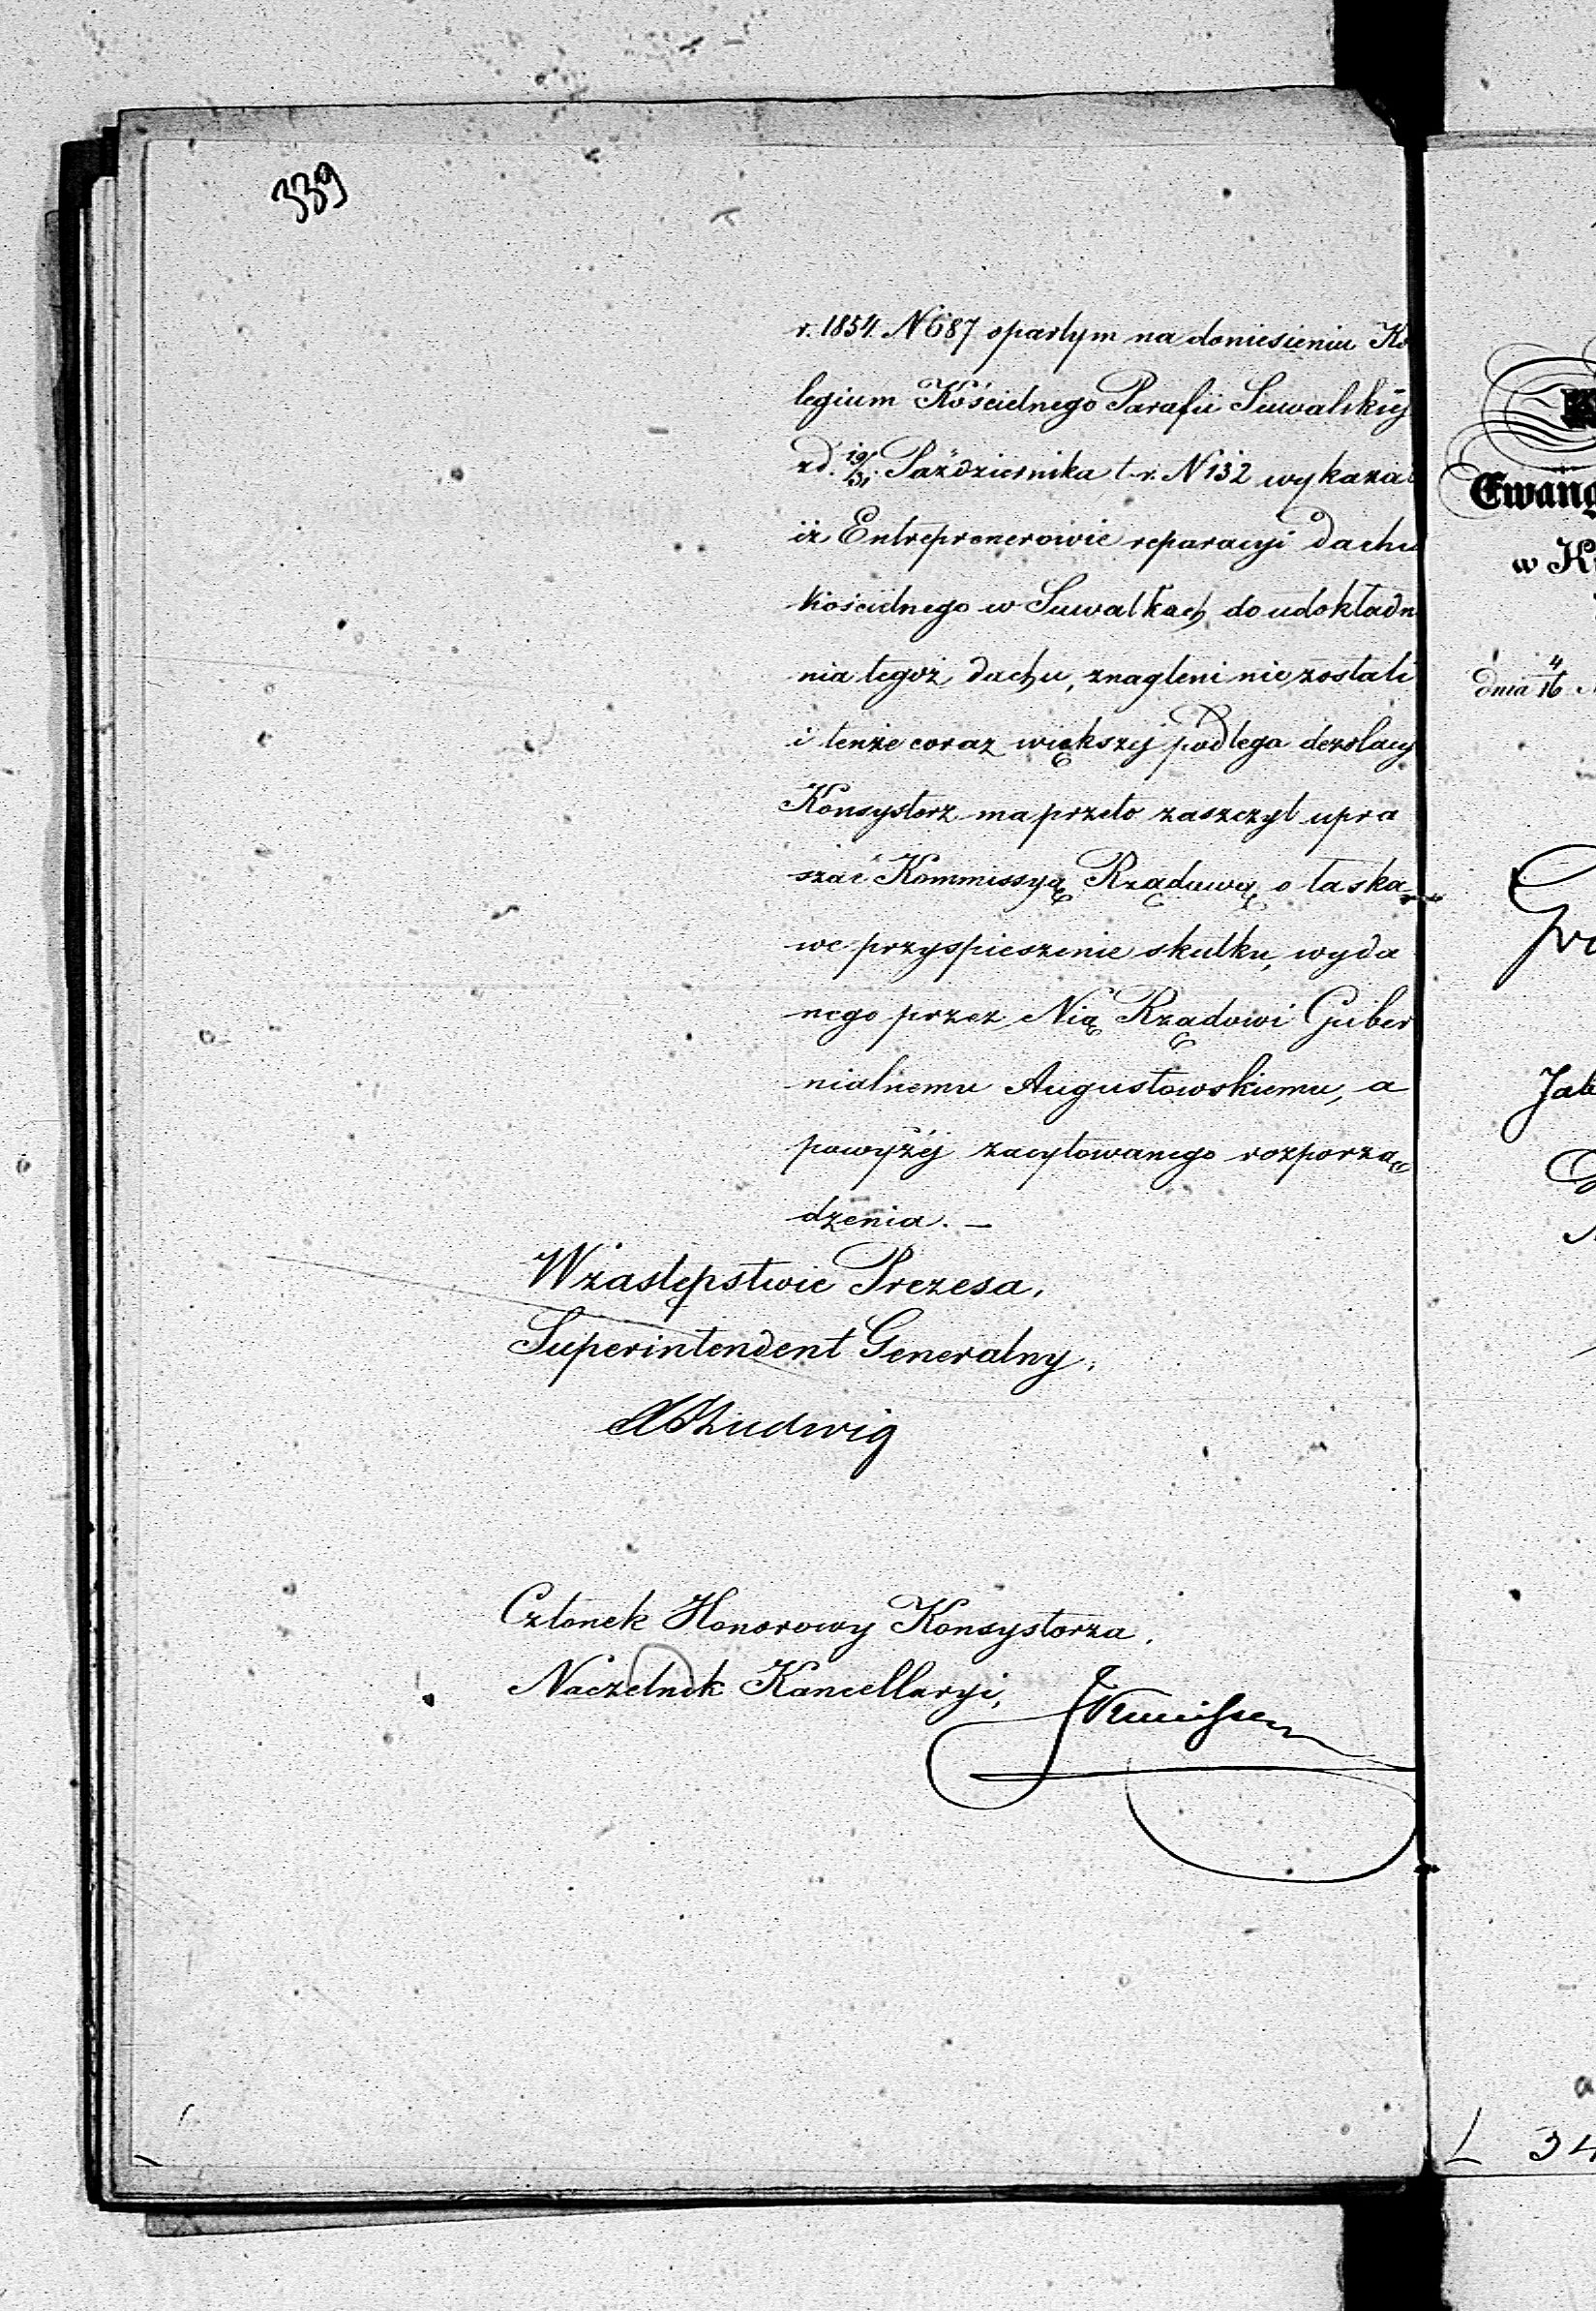 339
r. 1854. N 687 opartym na doniesieniu Ko
legium Kościelnego Parafii Suwalskiéj
zd. 19/31. Października t. r. N 132 wykazał
iż Entreprenerowie reparacyi dachu
kościelnego w Suwałkach do udokładn
nia tegoż dachu, znagleni nie zostali
i tenże coraz większéj podlega dezolacyi
Konsystorz ma przeto zaszczyt upra
szać Kommissyą Rządową o łaska
we przyspieszenie skutku, wyda
nego przez Nią Rządowi Guber
nialnemu Augustowskiemu, a
powyżéj zacytowanego rozporzą
dzenia. —
W zastępstwie Prezesa,
Superintendent Generalny,
Ludwig
Członek Honorowy Konsystorza,
Naczelnik Kancellaryi,
Ewang
w K
dnia 4/16
L 34